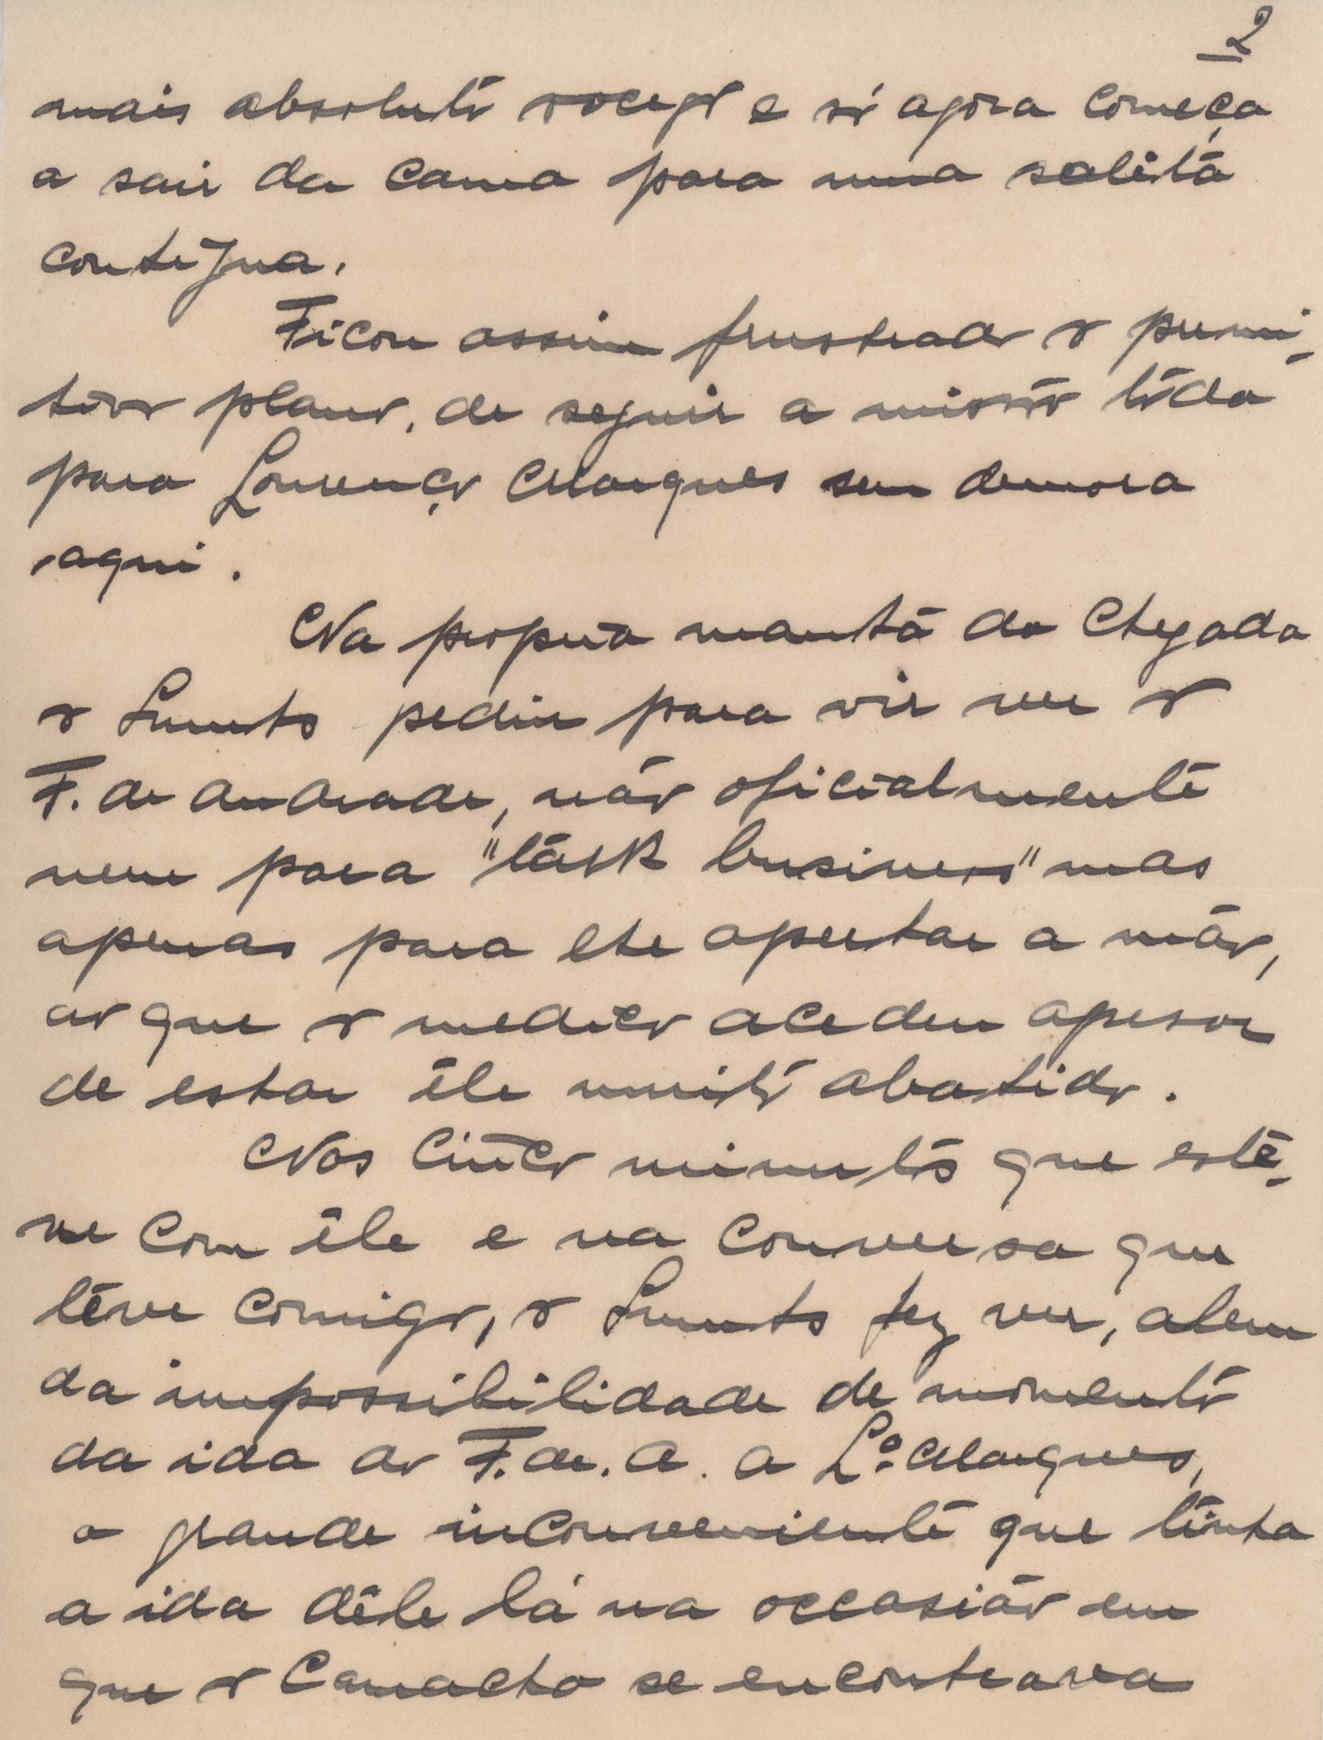 2
mais absoluto socego e só agora começa
a sair da cama para uma saleta
contigua.
Ficou assim frustrado o primi-
tivo plano, de seguir a missão tôda
para Lourenço Marques sem demora
aqui.
Na propria manhã da chegada
o Smuts pediu para vir ver o
F. de Andrade, não oficialmente
nem para "talk business" mas
apenas para lhe apertar a mão,
ao que o medico acedeu apesar
de estar êle muito abatido.
Nos cinco minutos que estê-
ve com êle e na conversa que
têve comigo, o Smuts fez ver, alem
da impossibilidade de momento
da ida do F. de. A. a L.º Marques,
o grande inconveniente que tinha
a ida dêle lá na occasião em
que o Camacho se encontrava